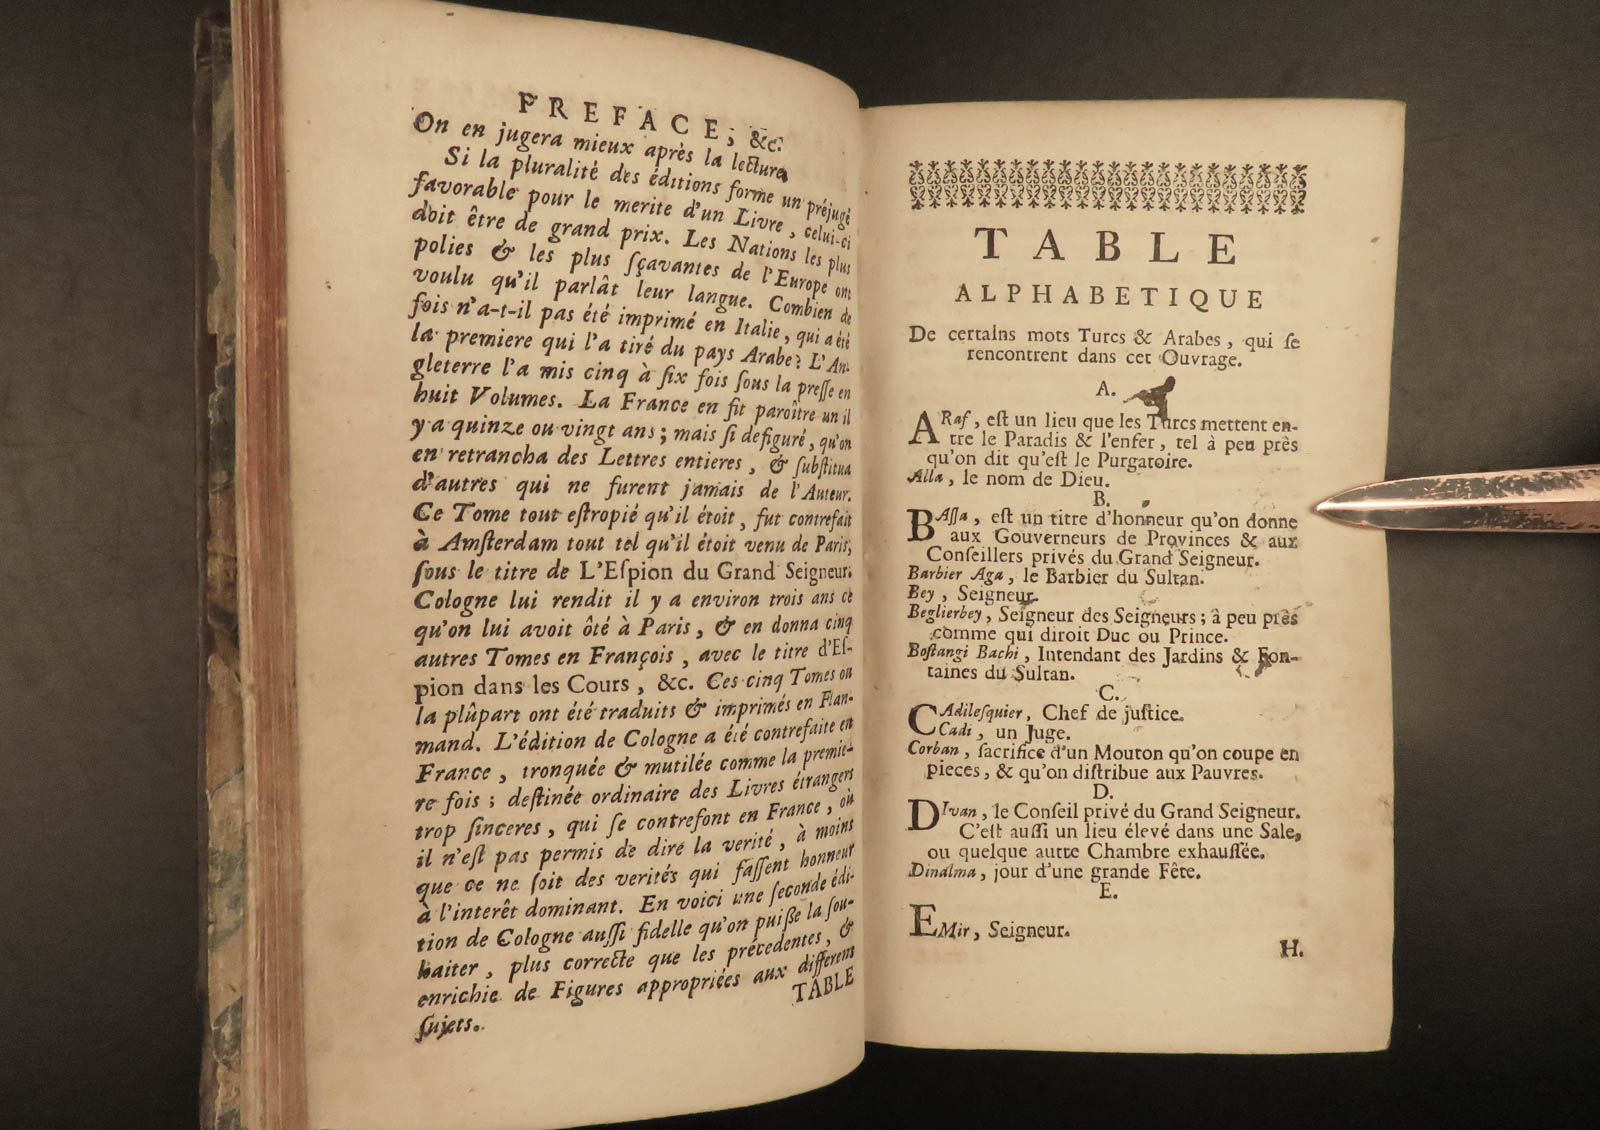 PREFACE, &c.
On en jugera mieux après la lecture.
Si la pluralité des éditions forme un préjugé
favorable pour le merite d'un Livre, celui-ci
doit être de grand prix. Les Nations les plus
polies & les plus sçavantes de l'Europe ont
voulu qu'il parlât leur langue. Combien de
fois n'a-t-il pas été imprimé en Italie, qui a été
la premiere qui l'a tiré du pays Arabe? L'An-
gleterre l'a mis cinq à ſix fois ſous la preſſe en
huit Volumes. La France en fit paroître un il
y a quinze ou vingt ans; mais ſi defiguré, qu'on
en retrancha des Lettres entieres, & ſubſtitua
d'autres qui ne furent jamais de l'Auteur.
Ce Tome tout eſtropié qu'il étoit, fut contrefait
à Amſterdam tout tel qu'il étoit venu de Paris,
ſous le titre de L'Eſpion du Grand Seigneur.
Cologne lui rendit il y a environ trois ans ce
qu'on lui avoit ôté à Paris, & en donna cinq
autres Tomes en François, avec le titre d'Eſ-
pion dans les Cours, &c. Ces cinq Tomes ou
la plûpart ont été traduits & imprimés en Flan-
mand. L'édition de Cologne a été contrefaite en
France, tronquée & mutilée comme la premie-
re fois; deſtinée ordinaire des Livres étrangers
trop ſinceres, qui ſe contrefont en France, où
il n'eſt pas permis de dire la verité, à moins
que ce ne ſoit des verités qui faſſent honneur
à l'interêt dominant. En voici une ſeconde édi-
tion de Cologne auſſi fidelle qu'on puiſſe la ſou-
haiter, plus correcte que les précedentes, &
enrichie de Figures appropriées aux differens
ſujets.
TABLE
TABLE
ALPHABETIQUE
De certains mots Turcs & Arabes, qui ſe
rencontrent dans cet Ouvrage.
A.
ARaf, eſt un lieu que les Turcs mettent en-
tre le Paradis & l'enfer, tel à peu près
qu'on dit qu'eſt le Purgatoire.
Alla, le nom de Dieu.
B.
BAſſa, eſt un titre d'honneur qu'on donne
aux Gouverneurs de Provinces & aux
Conſeillers privés du Grand Seigneur.
Barbier Aga, le Barbier du Sultan.
Bey, Seigneur.
Beglierbey, Seigneur des Seigneurs; à peu près
comme qui diroit Duc ou Prince.
Boſtangi Bachi, Intendant des Jardins & Fon-
taines du Sultan.
C.
CAdileſquier, Chef de juſtice.
Cadi, un Juge.
Corban, ſacrifice d'un Mouton qu'on coupe en
pieces, & qu'on diſtribue aux Pauvres.
D.
DIvan, le Conſeil privé du Grand Seigneur.
C'eſt auſſi un lieu élevé dans une Sale,
ou quelque autre Chambre exhauſſée.
Dinalma, jour d'une grande Fête.
E.
EMir, Seigneur.
H.